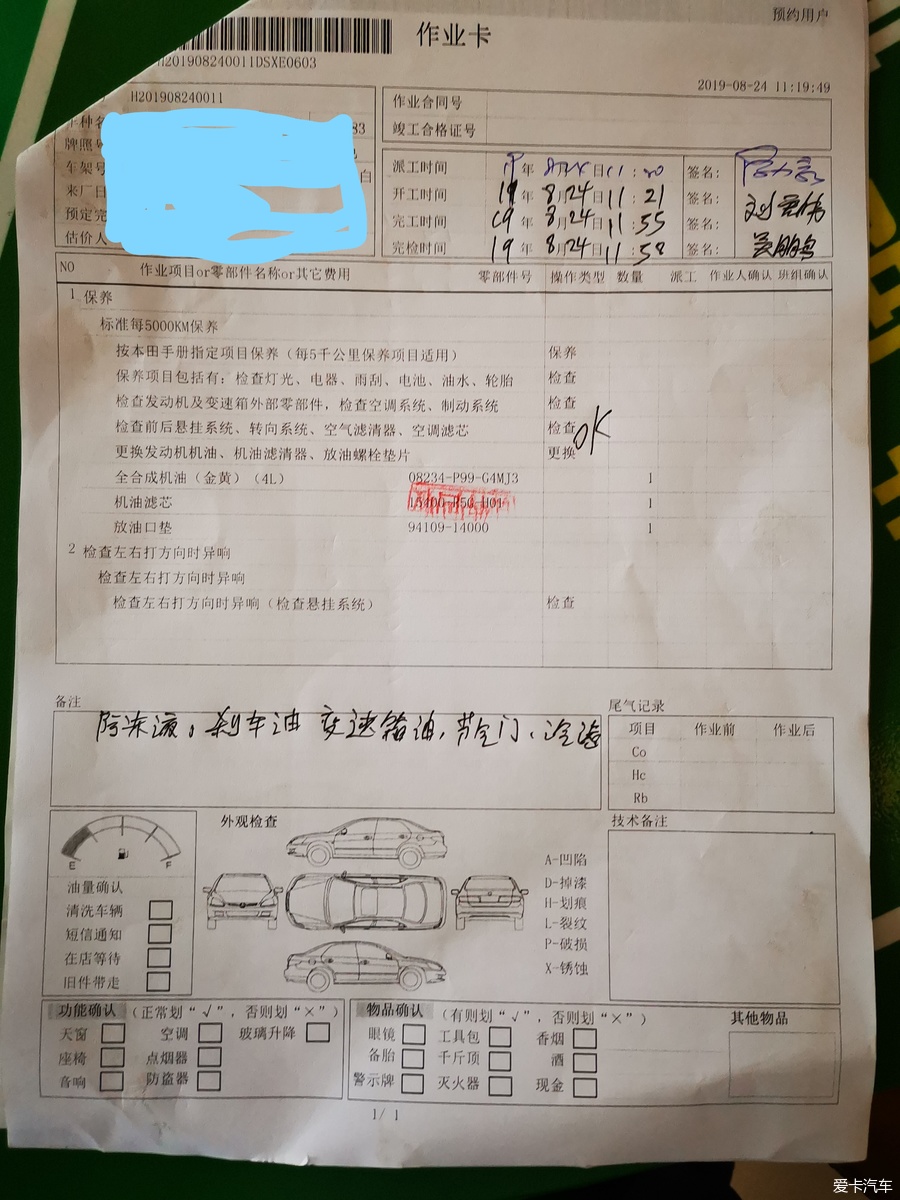 预约用户
作业卡
H201908240011DSXE0603
2019-08-24 11:19:49
H201908240011
车种名
83
牌照号
车架号
白
来厂日
预定完
估价人
作业合同号
竣工合格证号
派工时间 19年 8月24日11:20 签名:
开工时间 19年 8月24日11:21 签名:
完工时间 19年 8月24日11:55 签名:
完检时间 19年 8月24日11:58 签名:
NO 作业项目or零部件名称or其它费用 零部件号 操作类型 数量 派工 作业人确认 班组确认
1 保养
标准每5000KM保养
按本田手册指定项目保养（每5千公里保养项目适用） 保养
保养项目包括有: 检查灯光、电器、雨刮、电池、油水、轮胎 检查
检查发动机及变速箱外部零部件，检查空调系统、制动系统 检查
检查前后悬挂系统、转向系统、空气滤清器、空调滤芯 检查
OK
更换发动机机油、机油滤清器、放油螺栓垫片 更换
全合成机油（金黄）（4L） 08234-P99-G4MJ3 1
机油滤芯 1
放油口垫 94109-14000 1
2 检查左右打方向时异响
检查左右打方向时异响
检查左右打方向时异响（检查悬挂系统） 检查
备注
防冻液。刹车油 变速箱油，节气门、冷凝
尾气记录
项目 作业前 作业后
Co
Hc
Rb
技术备注
外观检查
E F
油量确认
清洗车辆
短信通知
在店等待
旧件带走
A-凹陷
D-掉漆
H-划痕
L-裂纹
P-破损
X-锈蚀
功能确认 （正常划“√”，否则划“×”）
天窗 空调 玻璃升降
座椅 点烟器
音响 防盗器
物品确认 （有则划“√”，否则划“×”）
眼镜 工具包 香烟
备胎 千斤顶 酒
警示牌 灭火器 现金
其他物品
1/ 1
爱卡汽车